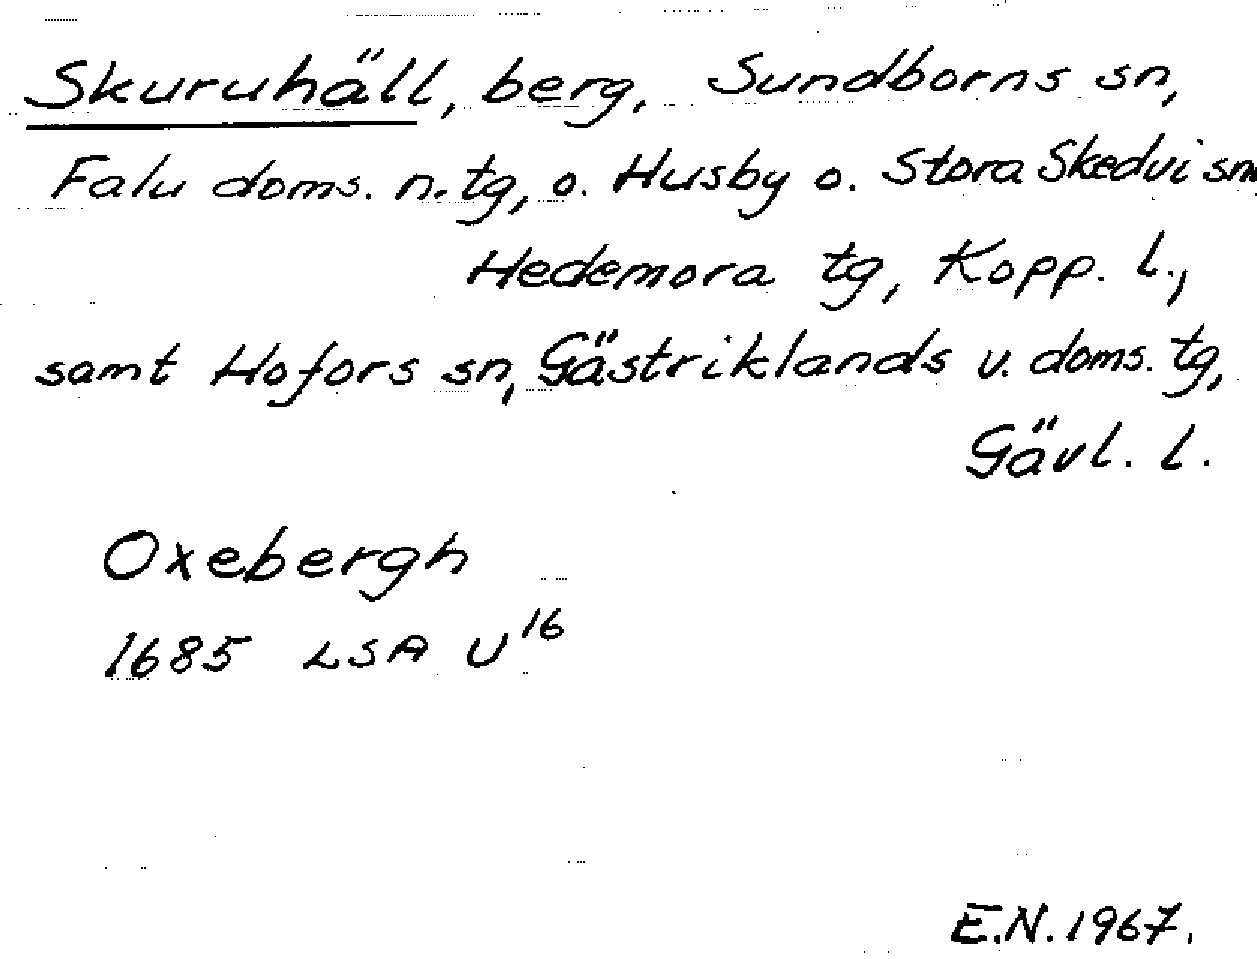 Skuruhäll, berg, Sundborns sn,
Falu doms. n. tg, o. Husby o. Stora Skedvi snr
Hedemora tg, Kopp. l.,
samt Hofors sn, Gästriklands v. doms. tg,
Gävl. l.
Oxebergh
1685 LSA U16
E.N. 1967.